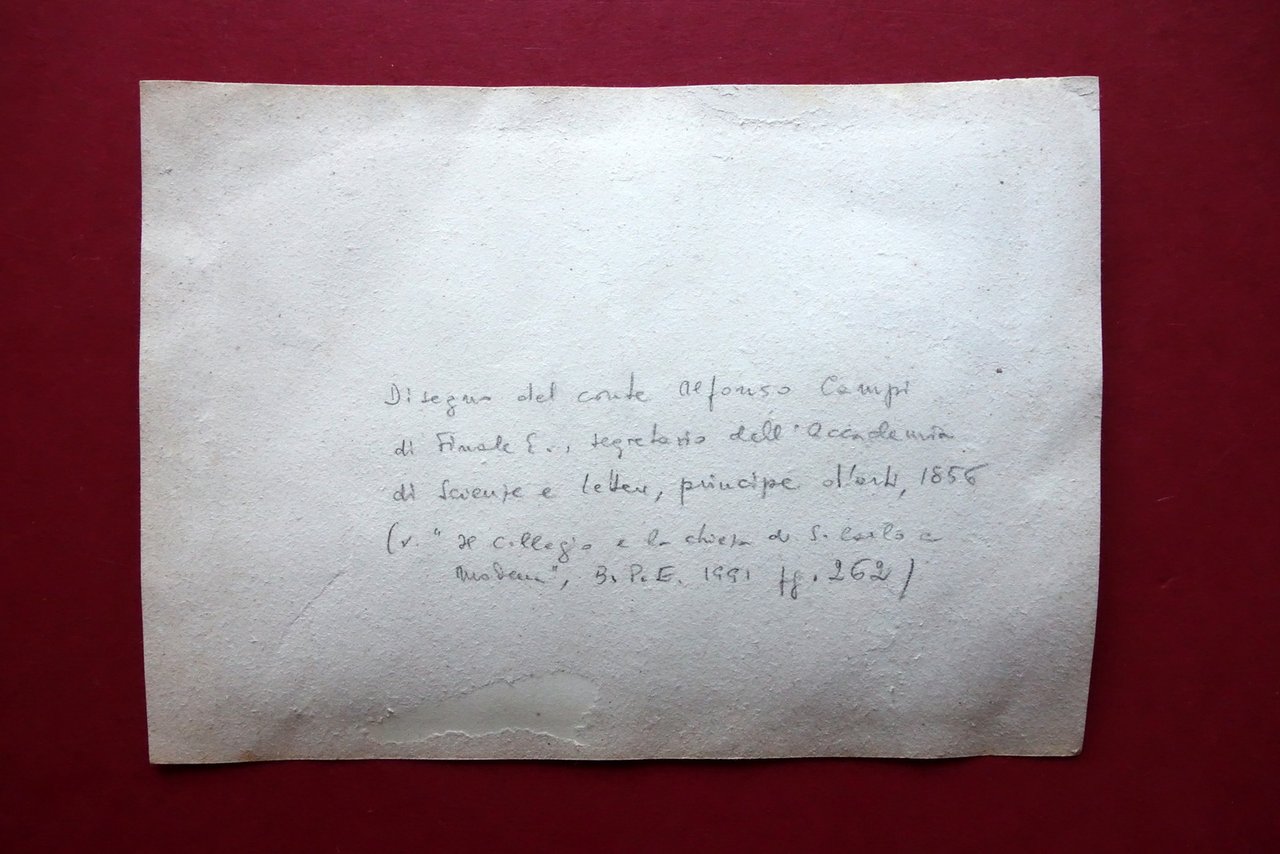 Disegno del conte Alfonso Campi
di Finale E., segretario dell'Accademia
di Scienze e lettere, principe d'arti, 1856
(v. "Il Collegio e la chiesa di S. Carlo a
Modena", B.P.E. 1991 pg. 262)